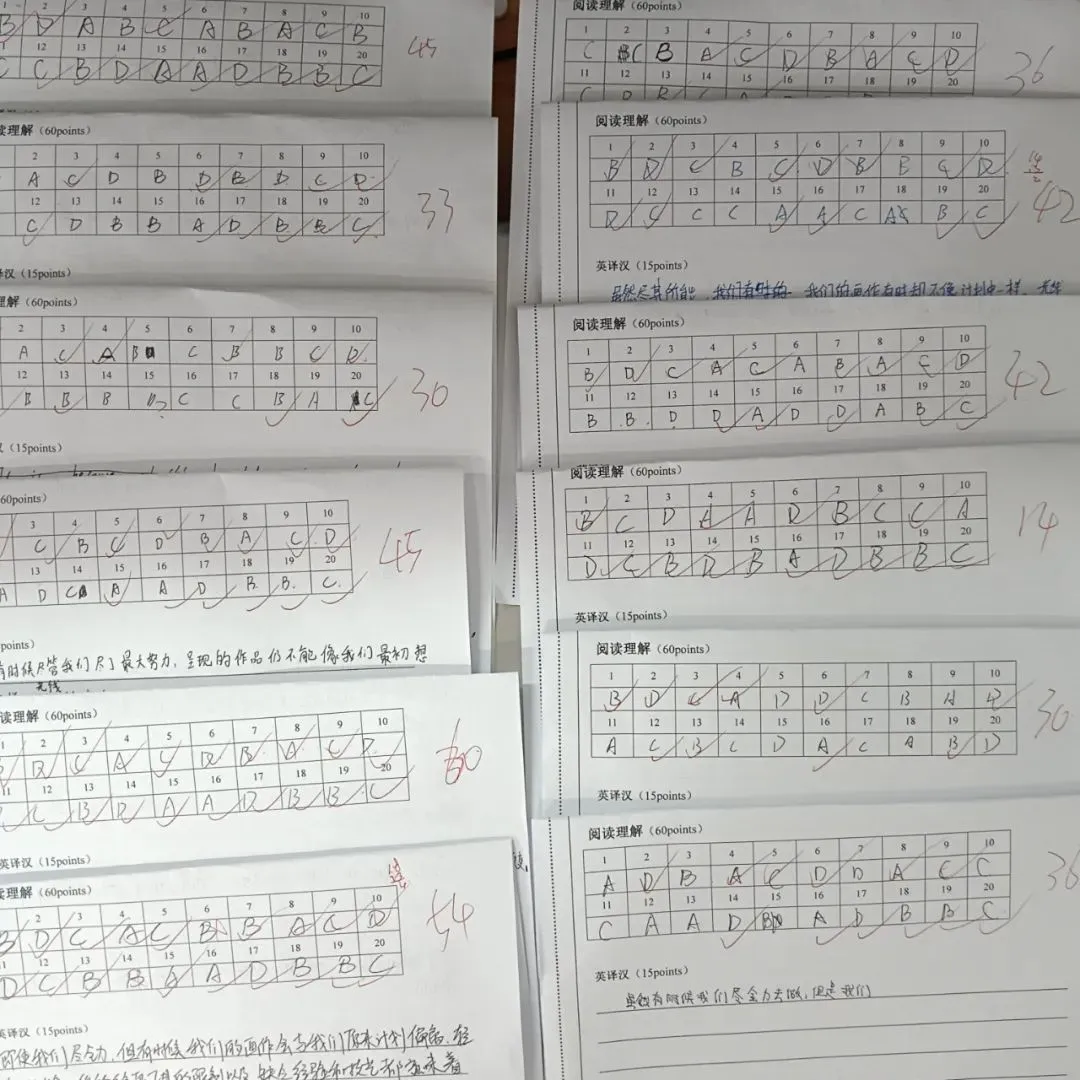 1 2 3 4 5 6 7 8 9 10
B D A B C A B A C B
12 13 14 15 16 17 18 19 20
C C B D A A D B B C
45
读理解（60points）
2 3 4 5 6 7 8 9 10
A C D B D B D C D
12 13 14 15 16 17 18 19 20
C D B B A D B B C
33
译汉（15points）
理解（60points）
2 3 4 5 6 7 8 9 10
A C A B C B B C D
12 13 14 15 16 17 18 19 20
B B B C C B A C
30
（15points）
60points）
3 4 5 6 7 8 9 10
C B C D B A C D
13 14 15 16 17 18 19 20
A D C A A D B B C
45
points）
有时候尽管我们尽了最大努力，呈现的作品仍不能像我们最初想
无线
读理解（60points）
1 2 3 4 5 6 7 8 9 10
D C A C D B A C D
11 12 13 14 15 16 17 18 19 20
C B D A A D B B C
60
英译汉（15points）
读理解（60points）
2 3 4 5 6 7 8 9 10
B D C A C B B A C D
12 13 14 15 16 17 18 19 20
D C B B A A D B B C
54
英译汉（15points）
即使我们尽全力，但有时候我们的画作会与我们原来计划偏离，
阅读理解（60points）
1 2 3 4 5 6 7 8 9 10
C C B A C D B A C D
11 12 13 14 15 16 17 18 19 20
36
阅读理解（60points）
1 2 3 4 5 6 7 8 9 10
B D C B C D B B C D
11 12 13 14 15 16 17 18 19 20
D C C C A A C A B C
42
英译汉（15points）
虽然尽其所能，我们有时的 我们的画作有时却不像计划中一样，
阅读理解（60points）
1 2 3 4 5 6 7 8 9 10
B D C A C A B A C D
11 12 13 14 15 16 17 18 19 20
B B D D A D D A B C
42
阅读理解（60points）
1 2 3 4 5 6 7 8 9 10
B C D A A D B C C A
11 12 13 14 15 16 17 18 19 20
D C B D B A D B B C
14
英译汉（15points）
阅读理解（60points）
1 2 3 4 5 6 7 8 9 10
B D C A D D C B A D
11 12 13 14 15 16 17 18 19 20
A C B C D A C A B D
30
英译汉（15points）
阅读理解（60points）
1 2 3 4 5 6 7 8 9 10
A D B A C D D A C C
11 12 13 14 15 16 17 18 19 20
C A A D B A D B B C
36
英译汉（15points）
虽然有时候我们尽全力去做，但是我们